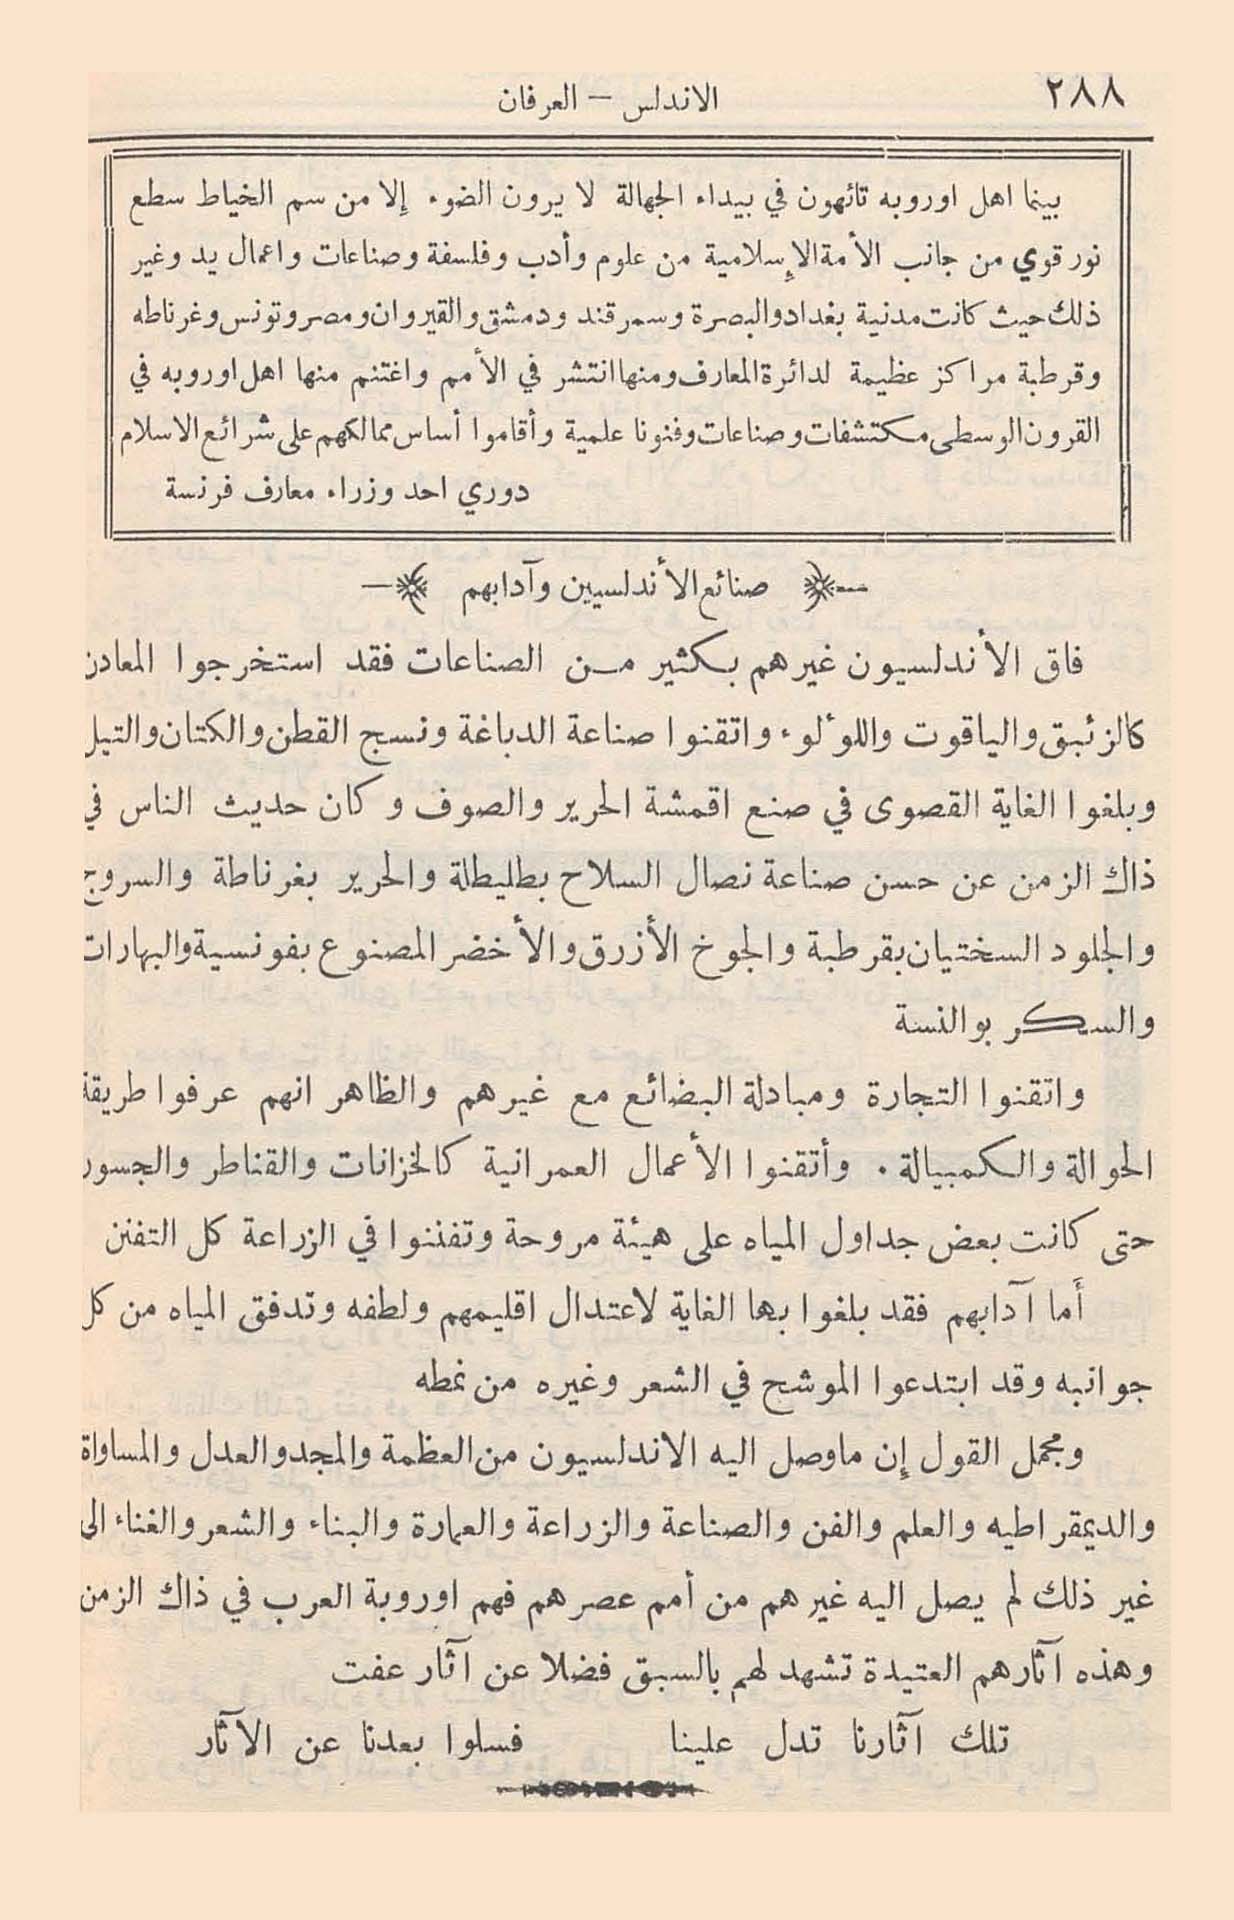 ٢٨٨
الاندلس — العرفان
بينما اهل اوروبه تائهون في بيداء الجهالة لا يرون الضوء إلا من سم الخياط سطع
نور قوي من جانب الأمة الإسلامية من علوم وأدب وفلسفة وصناعات واعمال يد وغير
ذلك حيث كانت مدنية بغداد والبصرة وسمرقند ودمشق والقيروان ومصر وتونس وغرناطه
وقرطبة مراكز عظيمة لدائرة المعارف ومنها انتشر في الأمم واغتنم منها اهل اوروبه في
القرون الوسطى مكتشفات وصناعات وفنونا علمية وأقاموا أساس ممالكهم على شرائع الاسلام
دوري احد وزراء معارف فرنسة
صنائع الأندلسيين وآدابهم
فاق الأندلسيون غيرهم بكثير من الصناعات فقد استخرجوا المعادن
كالزئبق والياقوت واللوءلوء واتقنوا صناعة الدباغة ونسج القطن والكتان والتيل
وبلغوا الغاية القصوى في صنع اقمشة الحرير والصوف وكان حديث الناس في
ذاك الزمن عن حسن صناعة نصال السلاح بطليطلة والحرير بغرناطة والسروج
والجلود السختيان بقرطبة والجوخ الأزرق والأخضر المصنوع بفونسية والبهارات
والسكر بوالنسة
واتقنوا التجارة ومبادلة البضائع مع غيرهم والظاهر انهم عرفوا طريقة
الحوالة والكمبيالة . وأتقنوا الأعمال العمرانية كالخزانات والقناطر والجسور
حتى كانت بعض جداول المياه على هيئة مروحة وتفننوا في الزراعة كل التفنن
أما آدابهم فقد بلغوا بها الغاية لاعتدال اقليمهم ولطفه وتدفق المياه من كل
جوانبه وقد ابتدعوا الموشح في الشعر وغيره من نمطه
ومجمل القول إن ما وصل اليه الاندلسيون من العظمة والمجد والعدل والمساواة
والديمقراطيه والعلم والفن والصناعة والزراعة والعمارة والبناء والشعر والغناء الى
غير ذلك لم يصل اليه غيرهم من أمم عصرهم فهم اوروبة العرب في ذاك الزمن
وهذه آثارهم العتيدة تشهد لهم بالسبق فضلا عن آثار عفت
تلك آثارنا تدل علينا فسلوا بعدنا عن الآثار